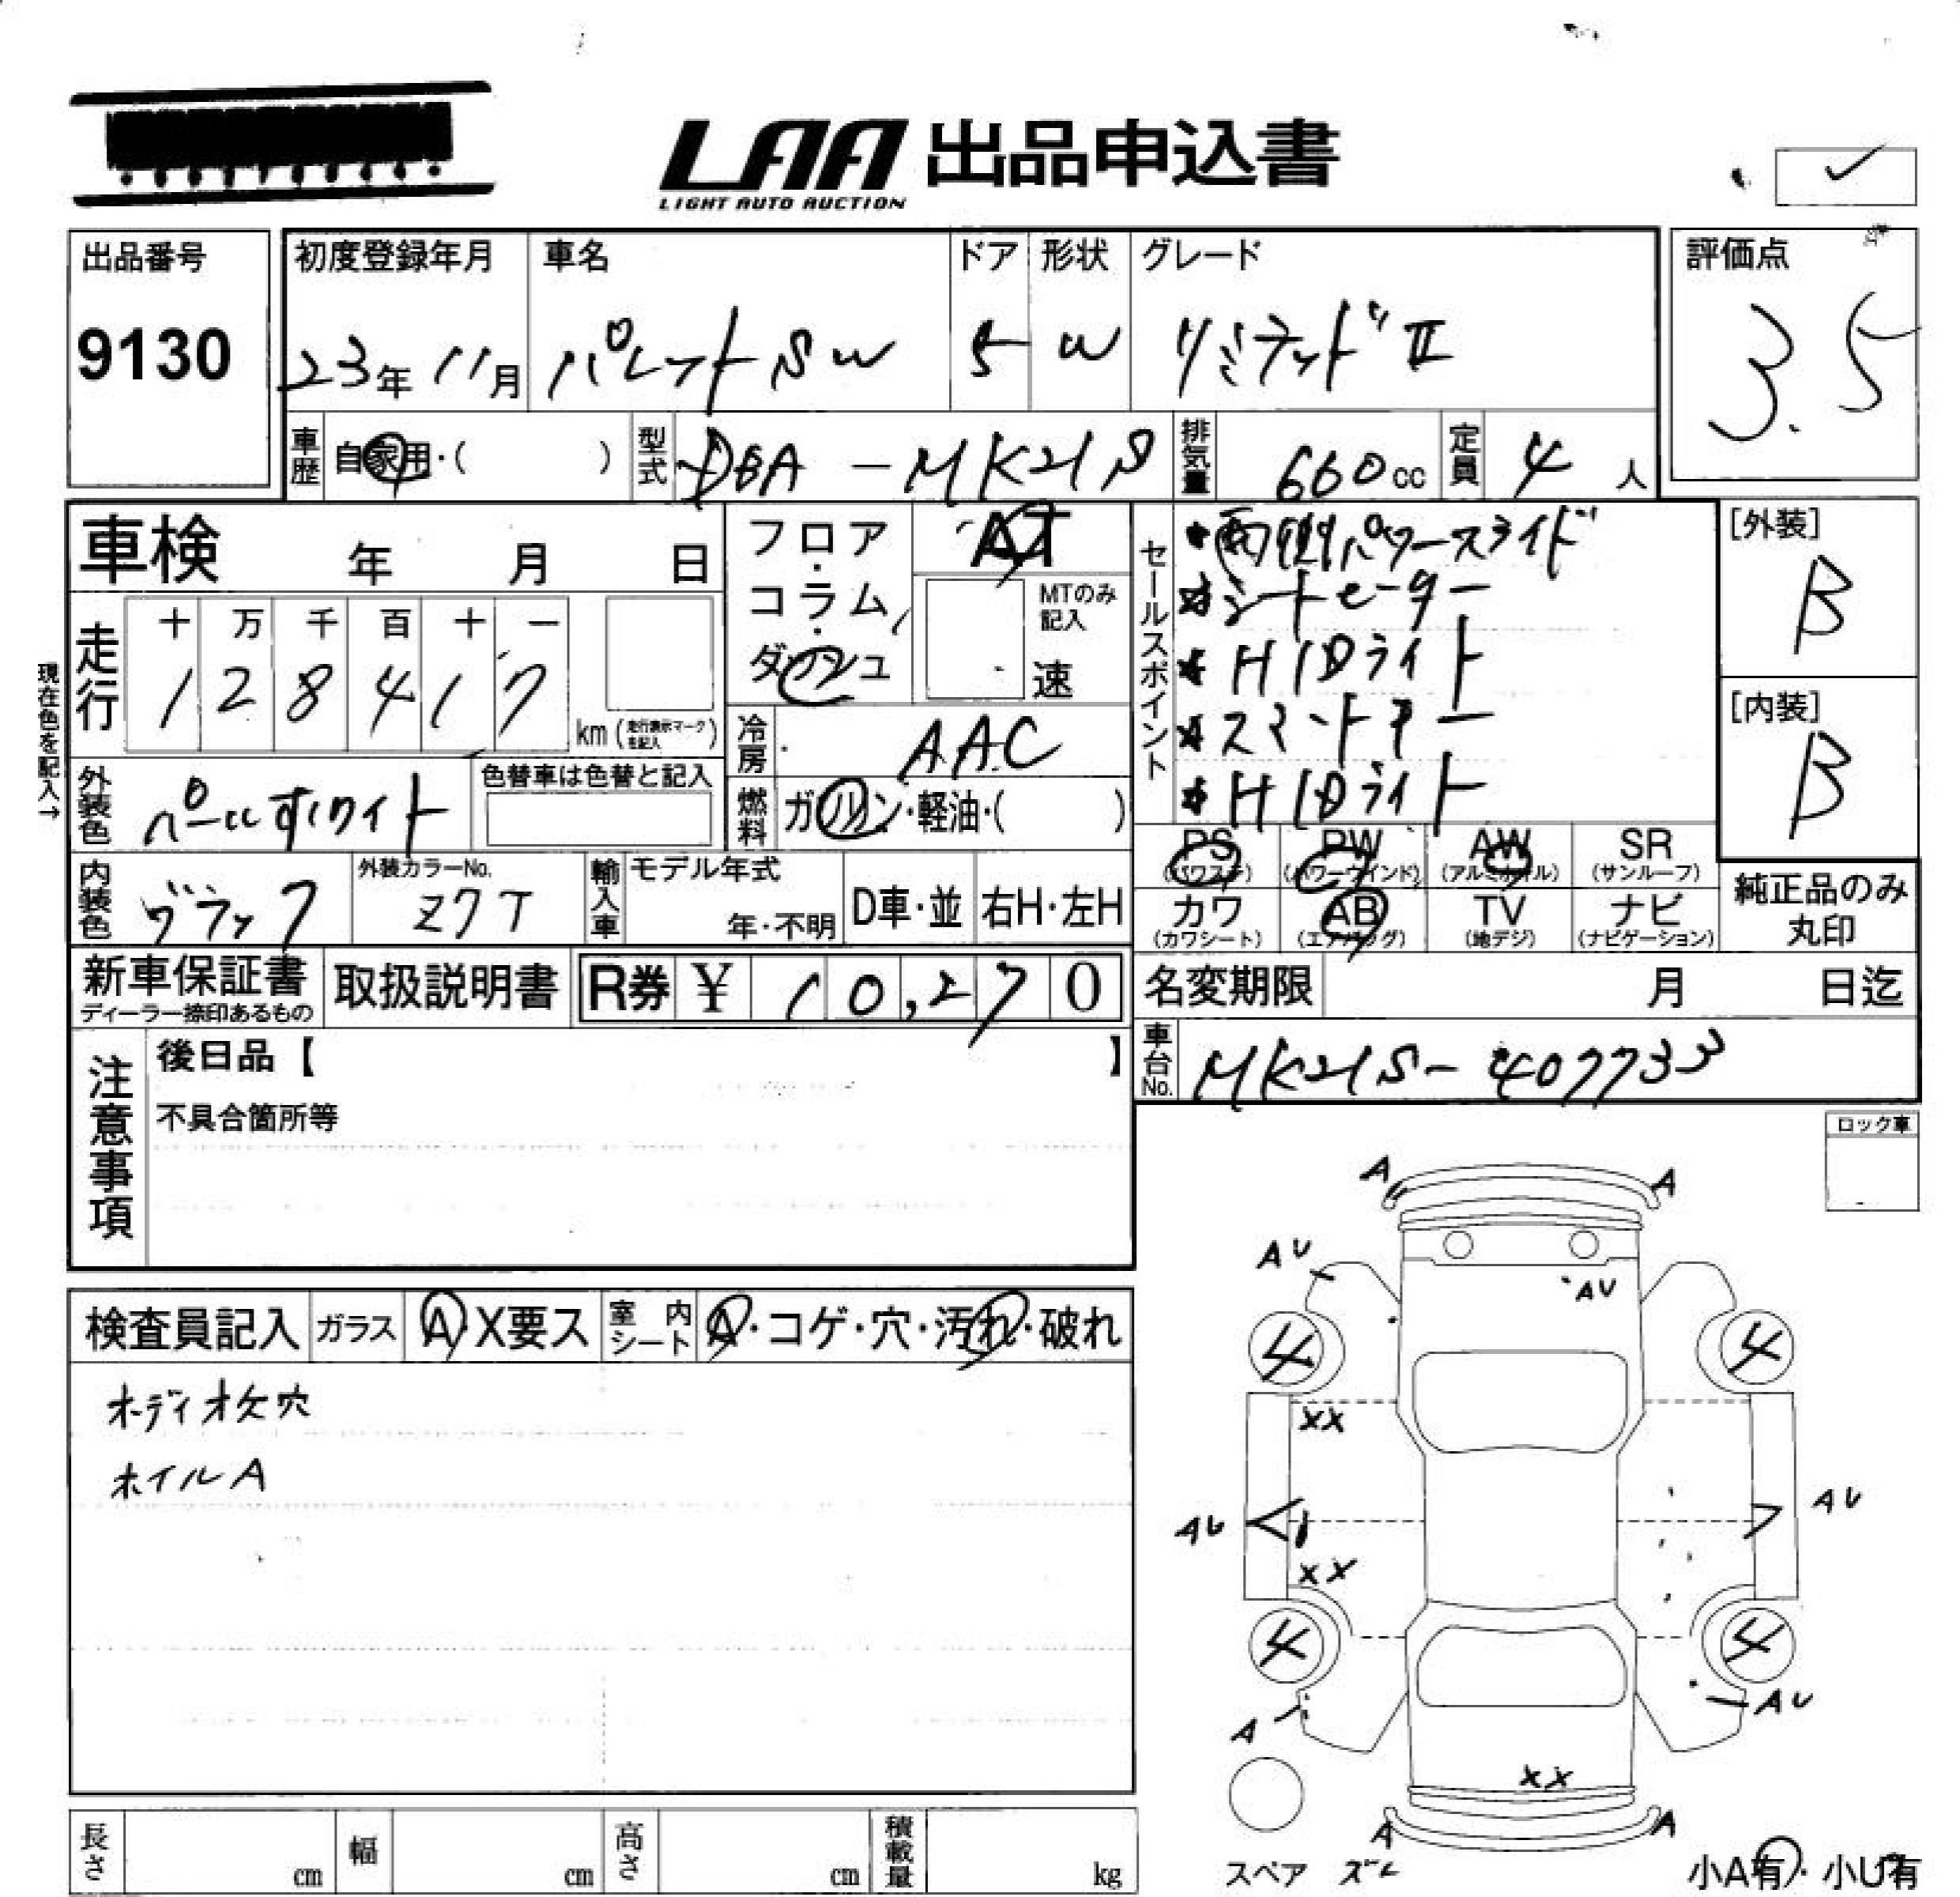 LAA 出品申込書
LIGHT AUTO AUCTION
✓
出品番号
9130
初度登録年月
23年 11月
車名
パレットSW
ドア
5
形状
W
グレード
リミテッドⅡ
評価点
3.5
車歴
自家用・( )
型式
DBA-MK21S
排気量
660cc
定員
4人
車検 年 月 日
フロア・コラム・ダッシュ
AT
MTのみ記入
速
走行
十 万 千 百 十 一
1 2 8 4 1 7
km(走行表示マークを記入)
現在色を記入→
冷房
AAC
燃料
ガソリン・軽油・( )
外装色
パールホワイト
色替車は色替と記入
内装色
ブラック
外装カラーNo.
Z7T
輸入車
モデル年式
年・不明
D車・並
右H・左H
セールスポイント
★両側パワースライド
★シートヒーター
★HIDライト
★スマートキー
★HIDライト
[外装]
B
[内装]
B
PS
(パワステ)
PW
(パワーウインド)
AW
(アルミホイル)
SR
(サンルーフ)
カワ
(カワシート)
AB
(エアバッグ)
TV
(地デジ)
ナビ
(ナビゲーション)
純正品のみ
丸印
新車保証書
ディーラー捺印あるもの
取扱説明書
R券 ¥ 10,270
名変期限 月 日迄
車台No.
MK21S-407733
注意事項
後日品【 】
不具合箇所等
ロック車
検査員記入
ガラス
A・X要ス
室内シート
A・コゲ・穴・汚れ・破れ
オーディオ欠穴
ホイルA
A
A
AU
AU
4
4
XX
AU
AU
XX
4
4
A
AU
XX
A
A
スペア ズレ
小A有・小U有
長さ cm
幅 cm
高さ cm
積載量 kg